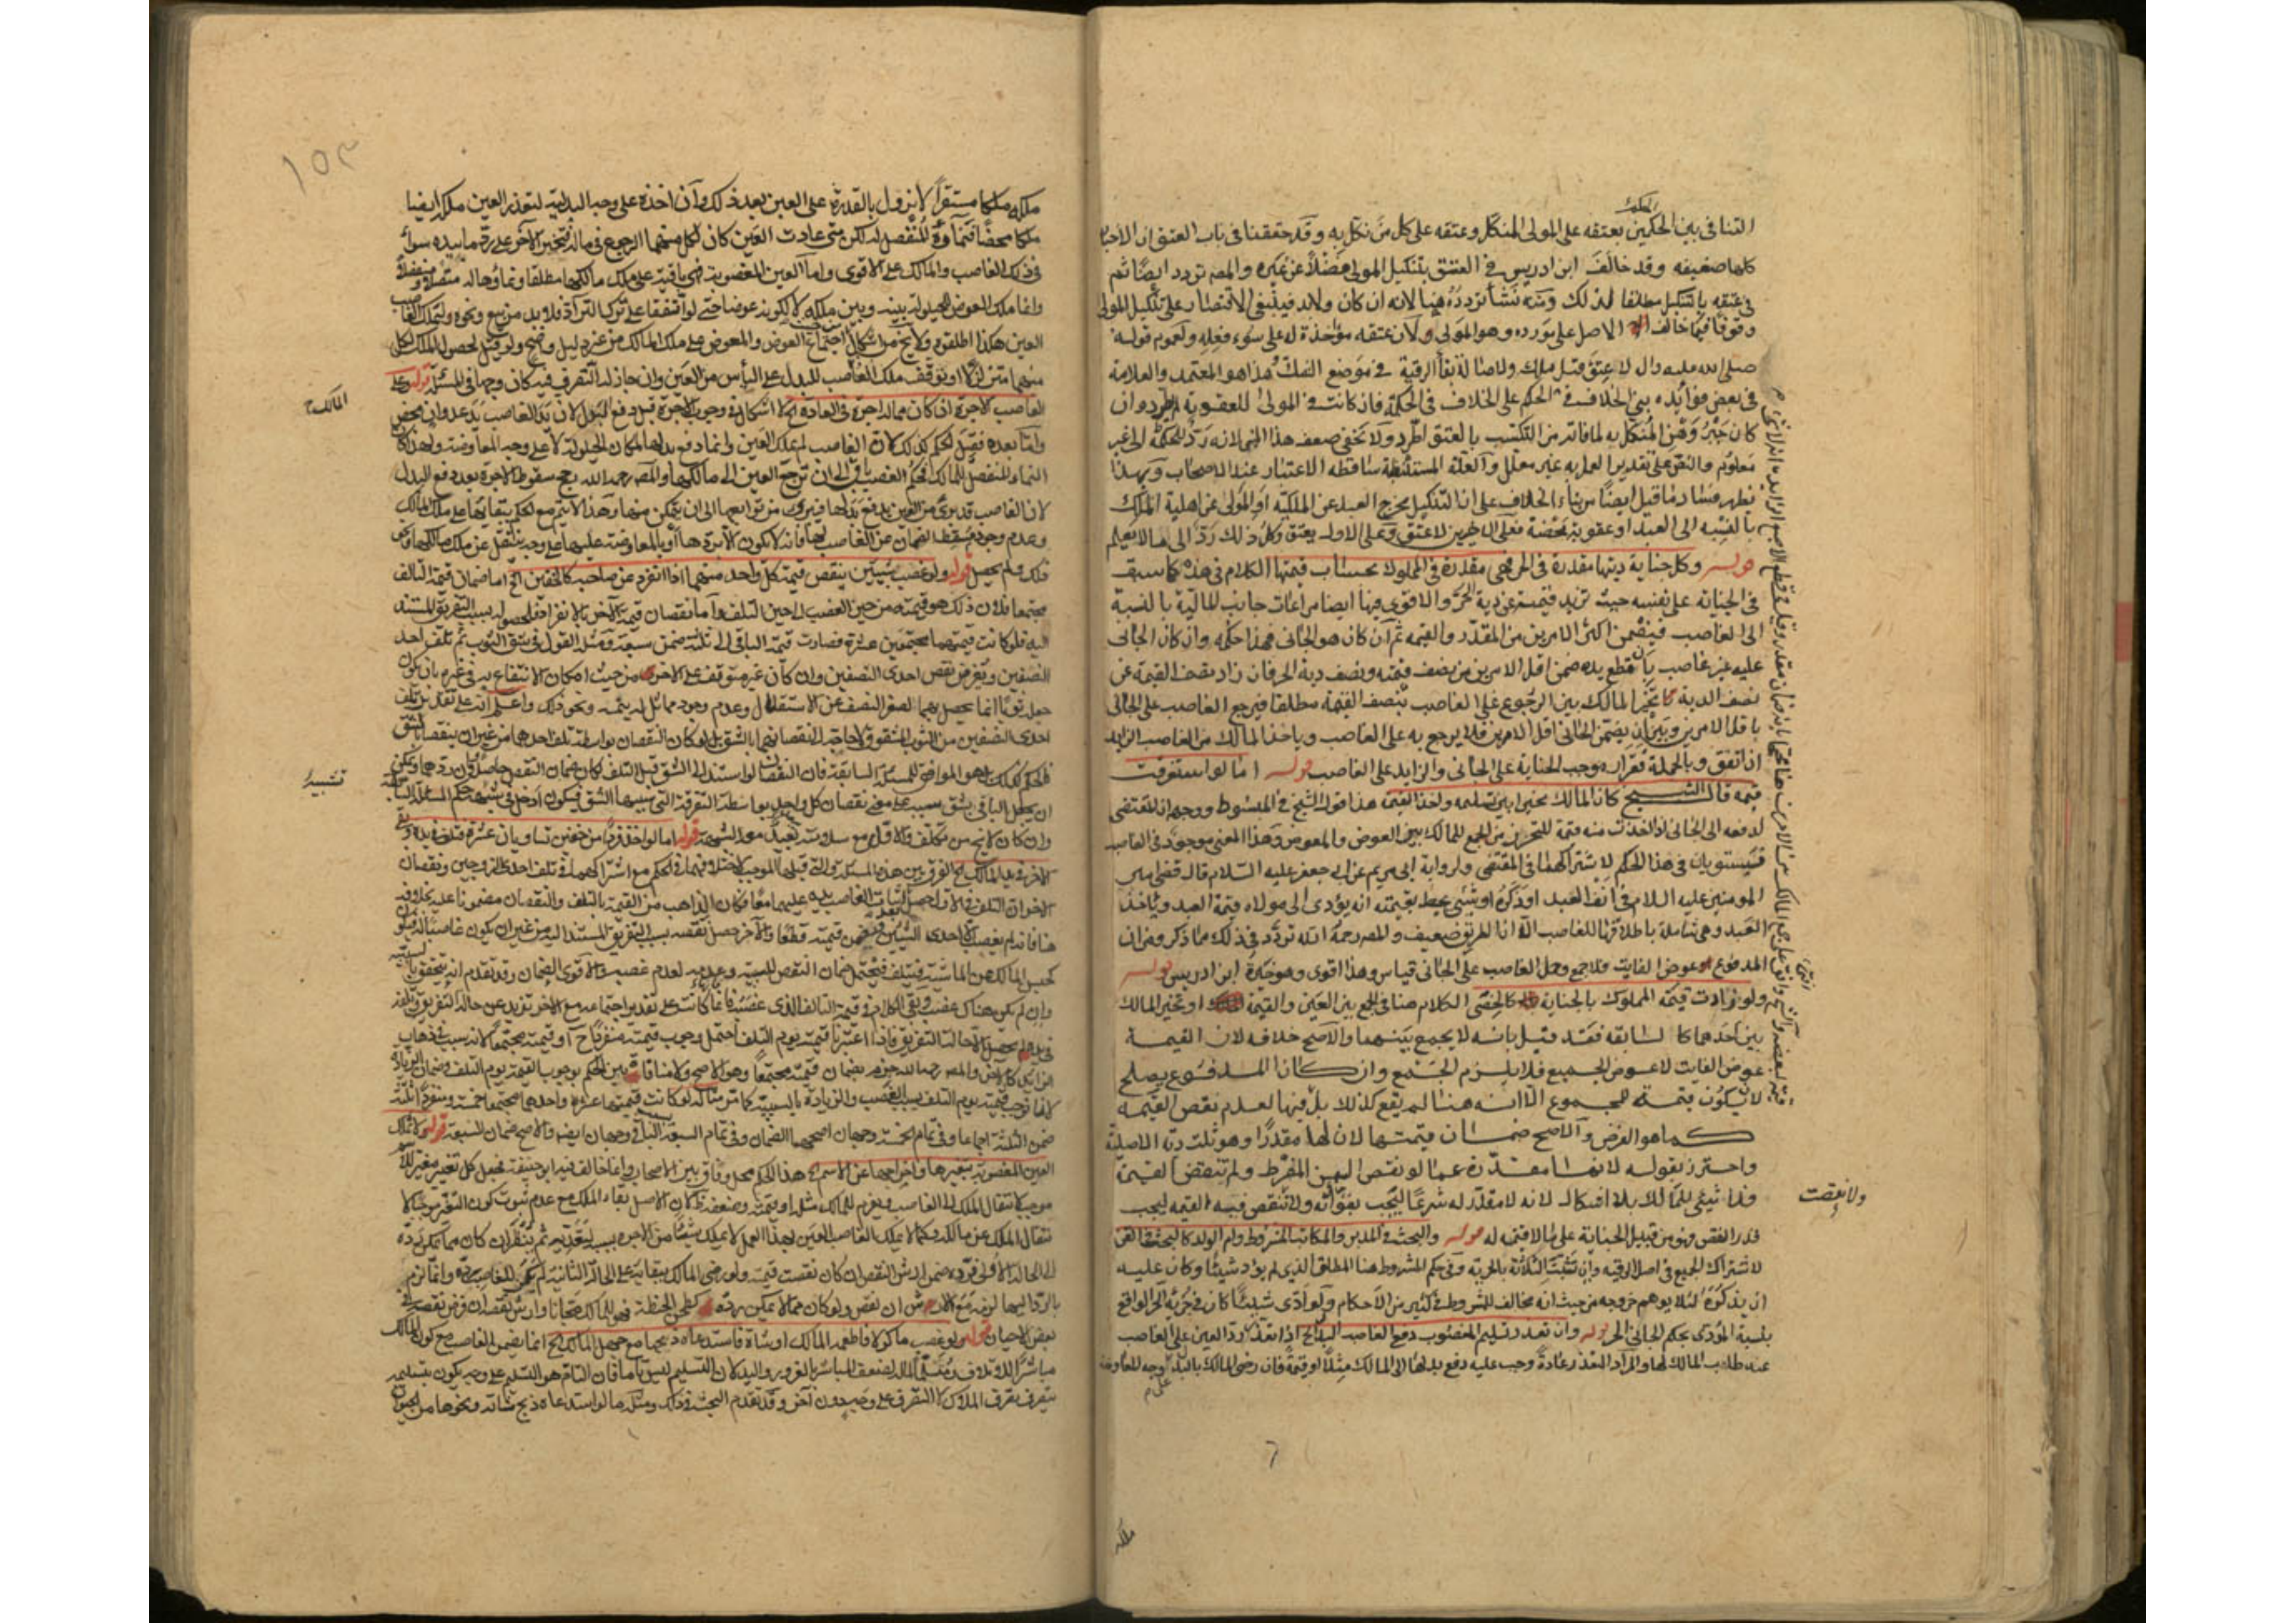 التنافي بين الحكمين بعتقه على المولى المنكل وعتقه على كل من نكل به وقد حققنا في باب العتق ان الاخبار
كلها ضعيفه وقد خالف ابن ادريس في العتق بتنكيل المولى فضلا عن غيره والمصـ تردد ايضا ثم
في عتقه بالتنكيل مطلقا لذلك ومنه نشأ تردده هنا لانه ان كان ولابد فينبغي الاقتصار على تنكيل المولى
وقوفا فيما خالف الاصل على مورده وهو المولى ولان عتقه مؤاخذة له على سوء فعله ولعموم قوله
صلى الله عليه وال لا عتق قبل ملك ولاصالة بقاء الرقية في موضع الشك هذا هو المعتمد والعلامة
في بعض فوائده بنى الخلاف في الحكم على الخلاف في الحكمة فان كانت في المولى للعقوبة لم يطرد وان
كان جبر وهن المنكل به لما فاته من التكسب بالعتق اطرد ولا يخفى ضعف هذا المبنى لانه رد للحكمة الى غير
معلوم والنص على تقدير العمل به غير معلل والعلة المستنبطة ساقطه الاعتبار عند الاصحاب وبهذا
يظهر فساد ما قيل ايضا من بناء الخلاف على ان التنكيل يخرج العبد عن الملكية او المولى عن اهلية الملك
بالنسبه الى العبد او عقوبة محضة فعلى الاخيرين لا عتق وعلى الاول يعتق وكل ذلك رد الى ما لا يعلم
قوله وكل جناية ديتها مقدرة في الحر فهي مقدرة في المملوك بحساب قيمتها الكلام في هذه كما سبق
في الجنايه على نفسه حيث تزيد قيمته عن دية الحر والاقوى فيها ايضا مراعات جانب المالية بالنسبة
الى الغاصب فيضمن اكثر الامرين من المقدر والقيمه ثم ان كان هو الجاني فهذا حكمه وان كان الجاني
عليه غير غاصب بان قطع يده ضمن اقل الامرين من نصف قيمته ونصف دية الحر فان زاد نصف القيمة عن
نصف الدية تخير المالك بين الرجوع على الغاصب بنصف القيمة مطلقا فيرجع الغاصب على الجاني
باقل الامرين وبين ان يضمن الجاني اقل الامرين فلا يرجع به على الغاصب وياخذ المالك من الغاصب الزايد
ان اتفق وبالجملة فقرار موجب الجناية على الجاني والزايد على الغاصب قوله اما لو استغرقت
قيمه قال الشيخ كان المالك مخيرا بين تسليمه واخذ القيمة هذا قول الشيخ في المبسوط ووجهه ان المقتضي
لدفعه الى الجاني اذا اخذت منه قيمة للتحرز من الجمع للمالك بين العوض والمعوض وهذا المعنى موجود في الغاصب
فيستويان في هذا الحكم لاشتراكهما في المقتضي ولرواية ابي مريم عن ابي جعفر عليه السلام قال قضى امير
المومنين عليه السلام في انف العبد او ذكره او شيء يحيط بقيمته انه يؤدى الى مولاه قيمة العبد وياخذ
العبد وهي شاملة باطلاقها للغاصب الا ان الطريق ضعيف والمصـ رحمة الله تردد في ذلك مما ذكر ومن ان
المدفوع عوض الفايت فلا جمع وحمل الغاصب على الجاني قياس وهذا اقوى وهو خيرة ابن ادريس قوله
ولو زادت قيمة المملوك بالجناية كالخصى الكلام هنا في الجمع بين العين والقيمة او تخير المالك
بين احدهما كالسابقه فقد قيل بانه لا يجمع بينهما والاصح خلافه لان القيمة
عوض الفايت لا عوض الجميع فلا يلزم الجمع وان كان المدفوع يصلح
لان يكون قيمة للمجموع الا انه هنا لم يقع كذلك بل فيها لعدم نقص القيمه
كما هو الفرض والاصح ضمان قيمتها لان لها مقدرا وهو ثلث دية الاصلية
واحترز بقوله لانها مقدرة عما لو نقص السمن المفرط ولم تنقص القيمة
فلا شيئ للمالك بلا اشكال لانه لا مقدر له شرعا ليجب بفواته ولا تنقص فيه القيمه ليجب
قدر النقص فهو من قبيل الجناية على ما لا قيمة له قوله والبحث في المدبر والمكاتب المشروط وام الولد كالبحث في القن
لاشتراك الجميع في اصل الرقيه وان تشبثت الثلاثة بالحرية وفي حكم المشروط هنا المطلق الذي لم يؤد شيئا وكان عليه
ان يذكره لئلا يوهم خروجه من حيث انه مخالف للمشروط في كثير من الاحكام ولو ادى شيئا كان في جزئه الحر الواقع
بنسبة المؤدى بحكم الجاني الحر قوله وان تعذر تسليم المغصوب دفع الغاصب البدل الخ اذا تعذر رد العين على الغاصب
عند طلب المالك لها والمراد التعذر عادة وجب عليه دفع بدلها الى المالك مثلا او قيمة فان رضي المالك بالبدل وجه المعاوضة
على م
ولا نقصت
ملكه
١٥٣
ملكه ملكا مستقرا لا يزول بالقدرة على العين بعد ذلك وان اخذه على وجه البدلية لتعذر العين ملكه ايضا
ملكا محضا فنماؤه المنفصل له لكن متى عادت العين كان لكل منهما الرجوع في ماله فيتخير الاخر على رد ما بيده سواء
في ذلك الغاصب والمالك على الاقوى واما العين المغصوبة فهي باقية على ملك مالكها مطلقا ونماؤها له متصلا ومنفصلا
وانما ملك العوض للحيلولة بينه وبين ملكه لا لكونه عوضا حتى لو اتفقا على ترك التراد فلا بد من بيع ونحوه وليتملك الغاصب
العين هكذا اطلقوه ولا يخ من اشكال من حيث اجتماع العوض والمعوض على ملك المالك من غير دليل واضح ولو قيل بحصول الملك لكل
منهما متزلزلا او توقف ملك الغاصب للبدل على اليأس من العين وان جاز له التصرف فيه كان وجها في المسئلة قوله وعلى
الغاصب الاجرة ان كان مما له اجرة في العادة الخ لا اشكال في وجوب الاجرة قبل دفع البدل لان يد الغاصب يد عدوان محض
المالك
واما بعده فقيل الحكم كذلك لان الغاصب لم يملك العين وانما دفع بدلها لمكان الحيلولة لا على وجه المعاوضة ولهذا كان
النماء المنفصل للمالك فحكم الغصب باق الى ان ترجع العين الى مالكها والمصـ رحمه الله رجح سقوط الاجرة بعد دفع البدل
لان الغاصب قد برئ من العين بدفع بدلها فيبرئ من توابعها الى ان يتمكن منها وهذا لا يتم مع الحكم ببقائها على ملك المالك
وعدم وجود مسقط الضمان عن الغاصب لها فانه لا يكون الا بردها او بالمعاوضة عليها على وجه ينتقل عن ملك مالكها وكل
ذلك لم يحصل قوله ولو غصب شيئين ينقص قيمة كل واحد منهما اذا انفرد عن صاحبه كالخفين الخ اما ضمان قيمة التالف
مجتمعا فلان ذلك هو قيمته من حين الغصب الى حين التلف واما نقصان قيمة الاخر بالانفراد فلحصوله بسبب التفريق المستند
اليه فلو كانت قيمتهما مجتمعين عشرة فصارت قيمة الباقي الى ثلثة ضمن سبعة ومثله القول في شق الثوب ثم تلف احد
النصفين ويفرض نقص احدى النصفين وان كان غير متوقف على الاخر من حيث امكان الانتفاع به في غيره بان يكون
جعله ثوبا انما يحصل بهما لصغر النصف عن الاستقلال وعدم وجود مماثل له يتمه ونحو ذلك واعلم انه على تقدير تلف
احدى النصفين من الثوب المشقوق لا حاجة الى نقصانهما بالشق بل لو كان النقصان بواسطة تلف احدهما من غير ان ينقصا بالشق
فالحكم كذلك بل هو الموافق للمسئلة السابقة فان النقصان لو استند الى الشق قبل التلف كان ضمان النقص حاصلا وان ردهما ويمكن
تشبيه
ان يجعل الباقي بشق بسببه على معنى نقصان كل واحد بواسطة التفرقة التي سببها الشق فيكون ادخل في شبهه حكم المسئلة السابقة
وان كان لا يخ من تكلف والاول مع سلامته بعيد معه الشبهه قوله اما لو اخذ فردا من خفين تساويان عشرة فتلف في يده وبقي
الاخر في يد المالك الخ الفرق بين هذه المسئلة والتي قبلها الموجب لاختلافهما في الحكم مع اشتراكهما في تلف احدى الزوجين ونقصان
الاخر ان التلف في الاول حصل باثبات الغاصب يده عليهما معا فكان الذاهب من القيمة بالتلف والنقصان مضمونا عليه بخلافه
هنا فانه لم يغصب الا احدى الشيئين فضمن قيمته قطعا والاخر حصل نقصه بسبب التفريق المستند اليه من غير ان يكون غاصبا له فيكون
كحبس المالك عن الماشية فيتلف فيحتمل ضمان النقص للسببية وعدمه لعدم غصبه والاقوى الضمان وقد تقدم انه يتحقق بالسببيه
وان لم يكن هناك غصب وبقي الكلام في قيمة التالف الذي غصبه فانما كانت على تقدير اجتماعه مع الاخر تزيد عن حالة التفريق وتلفه
في يده لم يحصل الا حالة التفريق فاذا اعتبرنا قيمته يوم التلف احتمل وجوب قيمته منفردا ح او قيمته مجتمعا لانه سبب في ذهاب
الزايد كالاخر والمصـ رحمه الله جزم بضمان قيمته مجتمعا وهو الاصح ولا منافاة بين الحكم بوجوب القيمة يوم التلف وضمان الزيادة
لانا نوجب قيمته يوم التلف بسبب الغصب والزيادة بالسببية كما مر مثاله لو كانت قيمتهما عشرة واحدهما مجتمعا خمسة ومنفردا ثلثة
ضمن الثلثة اجماعا وفي تمام الخمسة وجهان اصحهما الضمان وفي تمام السبعة الباقي وجهان ايضا والاصح ضمان السبعة قوله ولا تملك
العين المغصوبة بتغيرها واخراجها عن الاسم الخ هذا الحكم محل وفاق بين الاصحاب وانما خالف فيه ابو حنيفة فجعل كل تغيير مغير للاسم
موجبا لانتقال الملك الى الغاصب ويغرم للمالك مثله او قيمته وضعفه ظ لان الاصل بقاء الملك مع عدم ثبوت كون التغير موجبا لا
نتقال الملك عن مالكه وكما لا يملك الغاصب العين بهذا العمل لا يملك شيئا من الاجره بسبب ليتعديه ثم ينظر ان كان مما يمكن رده
الى الحالة الاولى فرده ضمن ارش النقص ان كان نقصت قيمته ولو رضي المالك ببقائه على الحالة الثانية لم يكن للغاصب رده وان الزم
بالرد اليها لزمه مع الارش ان نقص ولو كان مما لا يمكن رده كطحن الحنطة فهي للمالك مجانا وارش نقصه ان فرض نقصه في
بعض الاحيان قوله لو غصب ماكولا فاطعمه المالك او شاة فاستدعاه ذبحها مع جهل المالك الخ انما يضمن الغاصب مع كون المالك
مباشرا للاتلاف ومتسلما للمال لضعف المباشر بالغرور واليد كان التسليم ليس تاما فان التام هو التسليم على وجه يكون بتسليمه
يتصرف تصرف الملاك لا التصرف على وجه دون آخر وقد تقدم البحث في ذلك ومثله ما لو استدعاه ذبح شاته ونحوها من الحيوان